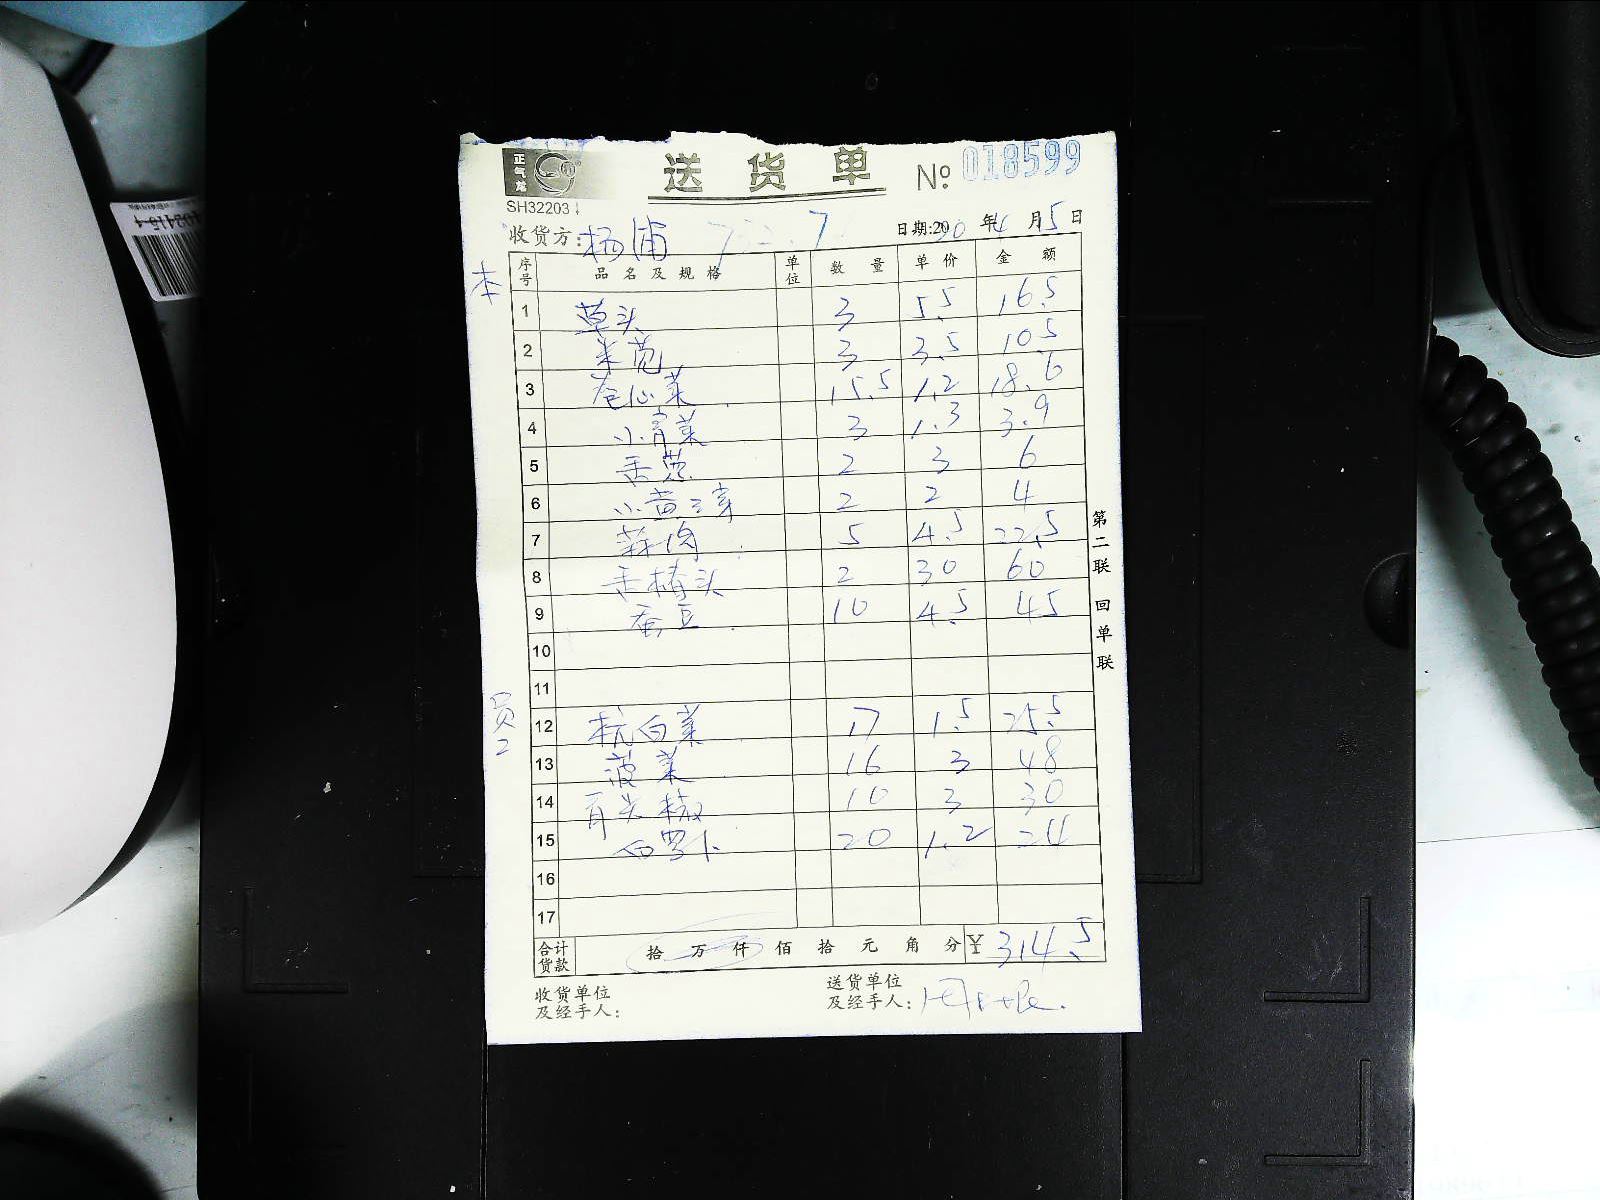 正气龙
SH32203
送货单 № 018599
收货方: 杨浦 日期:20 20 年 4 月 5 日
本
序号 品名及规格 单位 数量 单价 金额
1 草头 3 5.5 16.5
2 米苋 3 3.5 10.5
3 卷心菜 15.5 1.2 18.6
4 小青菜 3 1.3 3.9
5 香葱 2 3 6
6 小黄豆芽 2 2 4
7 蒜肉 5 4.5 22.5
8 香椿头 2 30 60
9 蚕豆 10 4.5 45
10
11
员2
12 杭白菜 17 1.5 25.5
13 菠菜 16 3 48
14 青尖椒 10 3 30
15 白罗卜 20 1.2 24
16
17
合计货款 拾 万 仟 佰 拾 元 角 分 ¥ 314.5
收货单位及经手人:
送货单位及经手人:
第二联 回单联